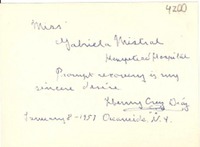 4200
Miss
Gabriela Mistral
Hempstead Hospital
Prompt recovery is my
sincere desire
Cruz Díaz
January 8-1957 Oceanside, N.Y.